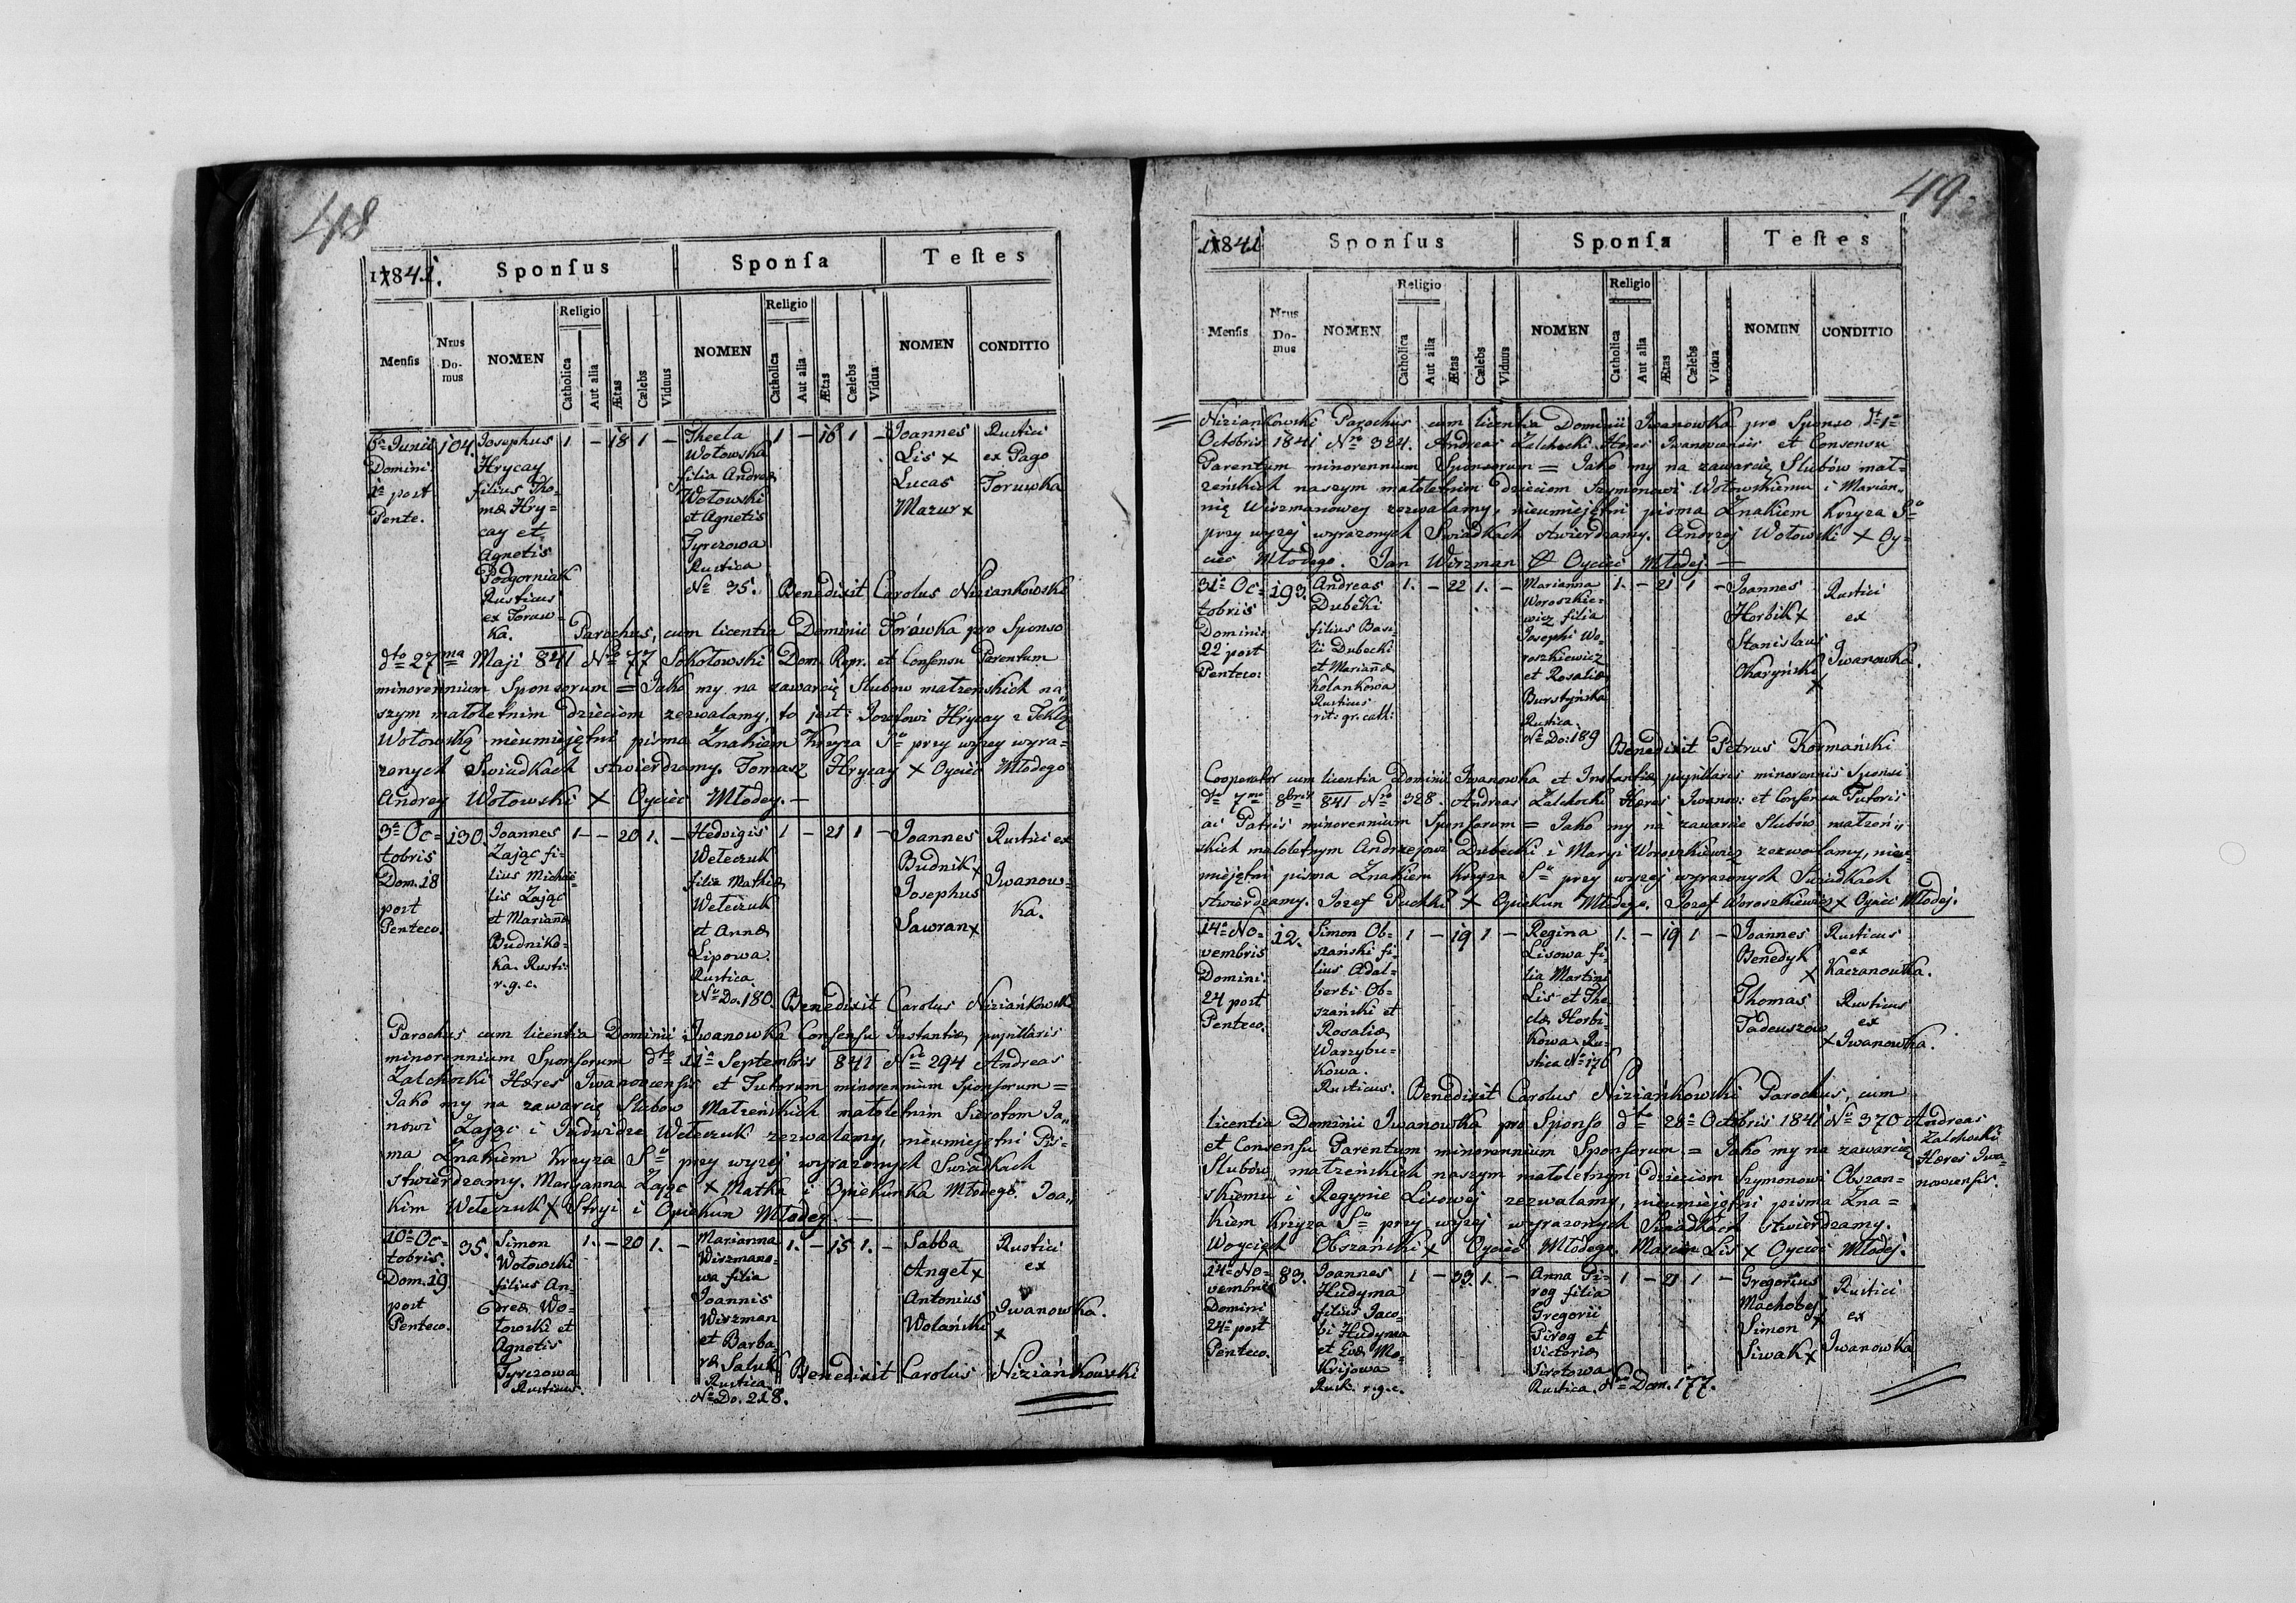 48
1841.
Sponsus
Sponsa
Testes
Mensis
Nrus Domus
NOMEN
Religio
Catholica
Aut alia
Ætas
Cælebs
Viduus
NOMEN
Religio
Catholica
Aut alia
Ætas
Cælebs
Vidua
NOMEN
CONDITIO
6a Junii
Domini.
1a post
Pente.
104.
Josephus
Hrycay
filius Tho-
mæ Hry-
cay et
Agnetis
Podgorniak
Rusticus
ex Toruw-
ka.
1 – 18 1 –
Thecla
Wołowska
filia Andreæ
Wołowski
et Agnetis
Tyrczowa
Rustica
No 35.
1 – 16 1 –
Joannes
Lis x
Lucas
Mazur x
Rustici
ex Pago
Toruwka
Benedixit Carolus Niziankowski
Parochus, cum licentia Dominii Torówka pro Sponso
dto 27ma Maji 841 No 77 Sokołowski Dom. Repr. et Consensu Parentum
minorennium Sponsorum = Jako my na zawarcię Slubow małzenskich na„
szym małoletnim dzieciom zezwalamy, to jest: Jozefowi Hrycay i Teklą
Wołowską nieumiejętni pisma Znakiem Krzyza So przy wyzey wyra-
zonych Swiadkach stwierdzamy. Tomasz Hrycay x Oyciec Młodego
Andrey Wołowski x Oyciec Młodey. –
3a Oc-
tobris
Dom. 18
post
Penteco.
130.
Joannes
Zając fi-
lius Michae-
lis Zając
et Mariannæ
Budniko-
ka. Rusti-
r. g. c.
1 – – 20 1. –
Hedvigis
Wełeczuk
filia Mathiæ
Wełeczuk
et Annæ
Lipowa.
Rustica.
No Do. 180.
1 – 21 1 –
Joannes
Budnik x
Josephus
Sawran x
Rustici ex
Iwanow-
ka.
Benedixit Carolus Niziańkowski
Parochus cum licentia Dominii Iwanowka Consensu Instantiæ pupillaris
minorennium Sponsorum dto 11a Septembris 841 No 294 Andreas
Zalchocki Hæres Iwanovcensis et Tutorum minorennium Sponsorum =
Jako my na zawarcię Slubow Małzeńskich małoletnim Sierotom Ja„
nowi Zając i Jadwidze Wełeczuk zezwalamy, nieumiejętni Pis-
ma Znakiem Krzyza So przy wyzej wyrazonych Swiadkach
stwierdzamy. Maryanna Zając x Matka i Opiekunka Młodego. Joa„
kim Wełeczuk x Stryi i Opiekun Młodey. –
10a Oc-
tobris.
Dom. 19
post
Penteco.
35.
Simon
Wołowski
filius An-
dreæ Wo-
łowski et
Agnetis
Tyrczowa
Rusticus.
1. – 20 1. –
Marianna
Wirzmano-
wa filia
Joannis
Wirzman
et Barba-
ræ Saluk
Rustica
No Do. 218.
1. – 15 1. –
Sabba
Angel x
Antonius
Wolański
x
Rustici
ex
Iwanowka.
Benedixit Carolus Niziańkowski
49.
1841
Sponsus
Sponsa
Testes
Mensis
Nrus Domus
NOMEN
Religio
Catholica
Aut alia
Ætas
Cælebs
Viduus
NOMEN
Religio
Catholica
Aut alia
Ætas
Cælebs
Vidua
NOMEN
CONDITIO
Niziankowski Parochus cum licentia Dominii Iwanowka pro Sponso dt 1a
Octobris 1841 Nro 324. Andreas Zalchocki Hæres Iwanovcensis et Consensu
Parentum minorennium Sponsorum = Jako my na zawarcię Slubów mał-
zeńskich naszym małoletnim dzieciom Szymonowi Wołowskiemu i Marian„
nię Wirzmanowey zezwalamy, nieumiejętni pisma Znakiem Krzyza So
przy wyzej wyrazonych Swiadkach stwierdzamy. Andrzej Wołowski x Oy-
ciec Młodego. Jan Wirzman Oyciec Młodej. –
31a Oc-
tobris
Dominic.
22 post
Penteco:
193.
Andreas
Dubecki
filius Basi-
lii Dubecki
et Mariannæ
Kolankowa
Rusticus
rit: gr. cath:
1. – 22 1. –
Marianna
Woroszkie-
wicz filia
Josephi Wo-
roszkiewicz
et Rosaliæ
Bursztyńska
Rustica.
No Do: 189
1. – 21 1 –
Joannes
Horbik x
Stanislaus
Okaryński
x
Rustici
ex
Iwanowka.
Benedixit Petrus Kormański
Cooperator cum licentia Dominii Iwanowka et Instantiæ pupillaris minorennis Sponsi
dto 7ma 8bris 841 No 328. Andreas Zalchocki Hæres Iwanow: et Consensu Tutoris
ac Patris minorennium Sponsorum = Jako my na zawarcie Slubów małzeń„
skich małoletnym Andrzejowi Dubecki i Maryi Woroszkiewicz zezwalamy, nieu-
miejętni pisma Znakiem Krzyza So przy wyzej wyrazonych Swiadkach
stwierdzamy. Jozef Puchki x Opiekun Młodego. Jozef Woroszkiewicz x Oyciec Młodej.
14a No-
vembris
Domini.
24 post
Penteco.
12.
Simon Ob-
szański fi-
lius Adal-
berti Ob-
szański et
Rosaliæ
Warzybu-
kowa.
Rusticus.
1 – 19 1 –
Regina
Lisowa fi-
lia Martini
Lis et The-
clæ Horbi-
kowa Ru-
stica No 176
1. – 19 1 –
Joannes
Benedyk
x
Thomas
Tadeuszow
x
Rusticus
ex
Kaczanowka.
Rusticus
ex
Iwanowka.
Benedixit Carolus Niziańkowski Parochus, cum
licentia Dominii Iwanowka pro Sponso dto 28a Octobris 1841 No 370 Andreas
Zalchocki
Hæres Iwa-
novcensis.
et Consensu Parentum minorennium Sponsorum. = Jako my na zawarcię
Slubów małzeńskich naszym małoletnym dzieciom Szymonowi Obszan-
skiemu i Regynie Lisowej zezwalamy, nieumiejętni pisma Zna-
kiem Krzyza So przy wyzej wyrazonych Swiadkach stwierdzamy.
Woyciech Obszański x Oyciec Młodego. Marcin Lis x Oyciec Młodej.
14a No-
vembris
Domini
24a post
Penteco.
83.
Joannes
Hudyma
filius Jaco-
bi Hudyma
et Evæ Mo-
krijowa
Rusti. r. g. c.
1 – 33. 1. –
Anna Pi-
rog filia
Gregorii
Pirog et
Victoriæ
Sirotowa
Rustica. No Dom. 177.
1 – 21 1 –
Gregorius
Machobej
x
Simon
Siwak x
Rustici
ex
Iwanowka